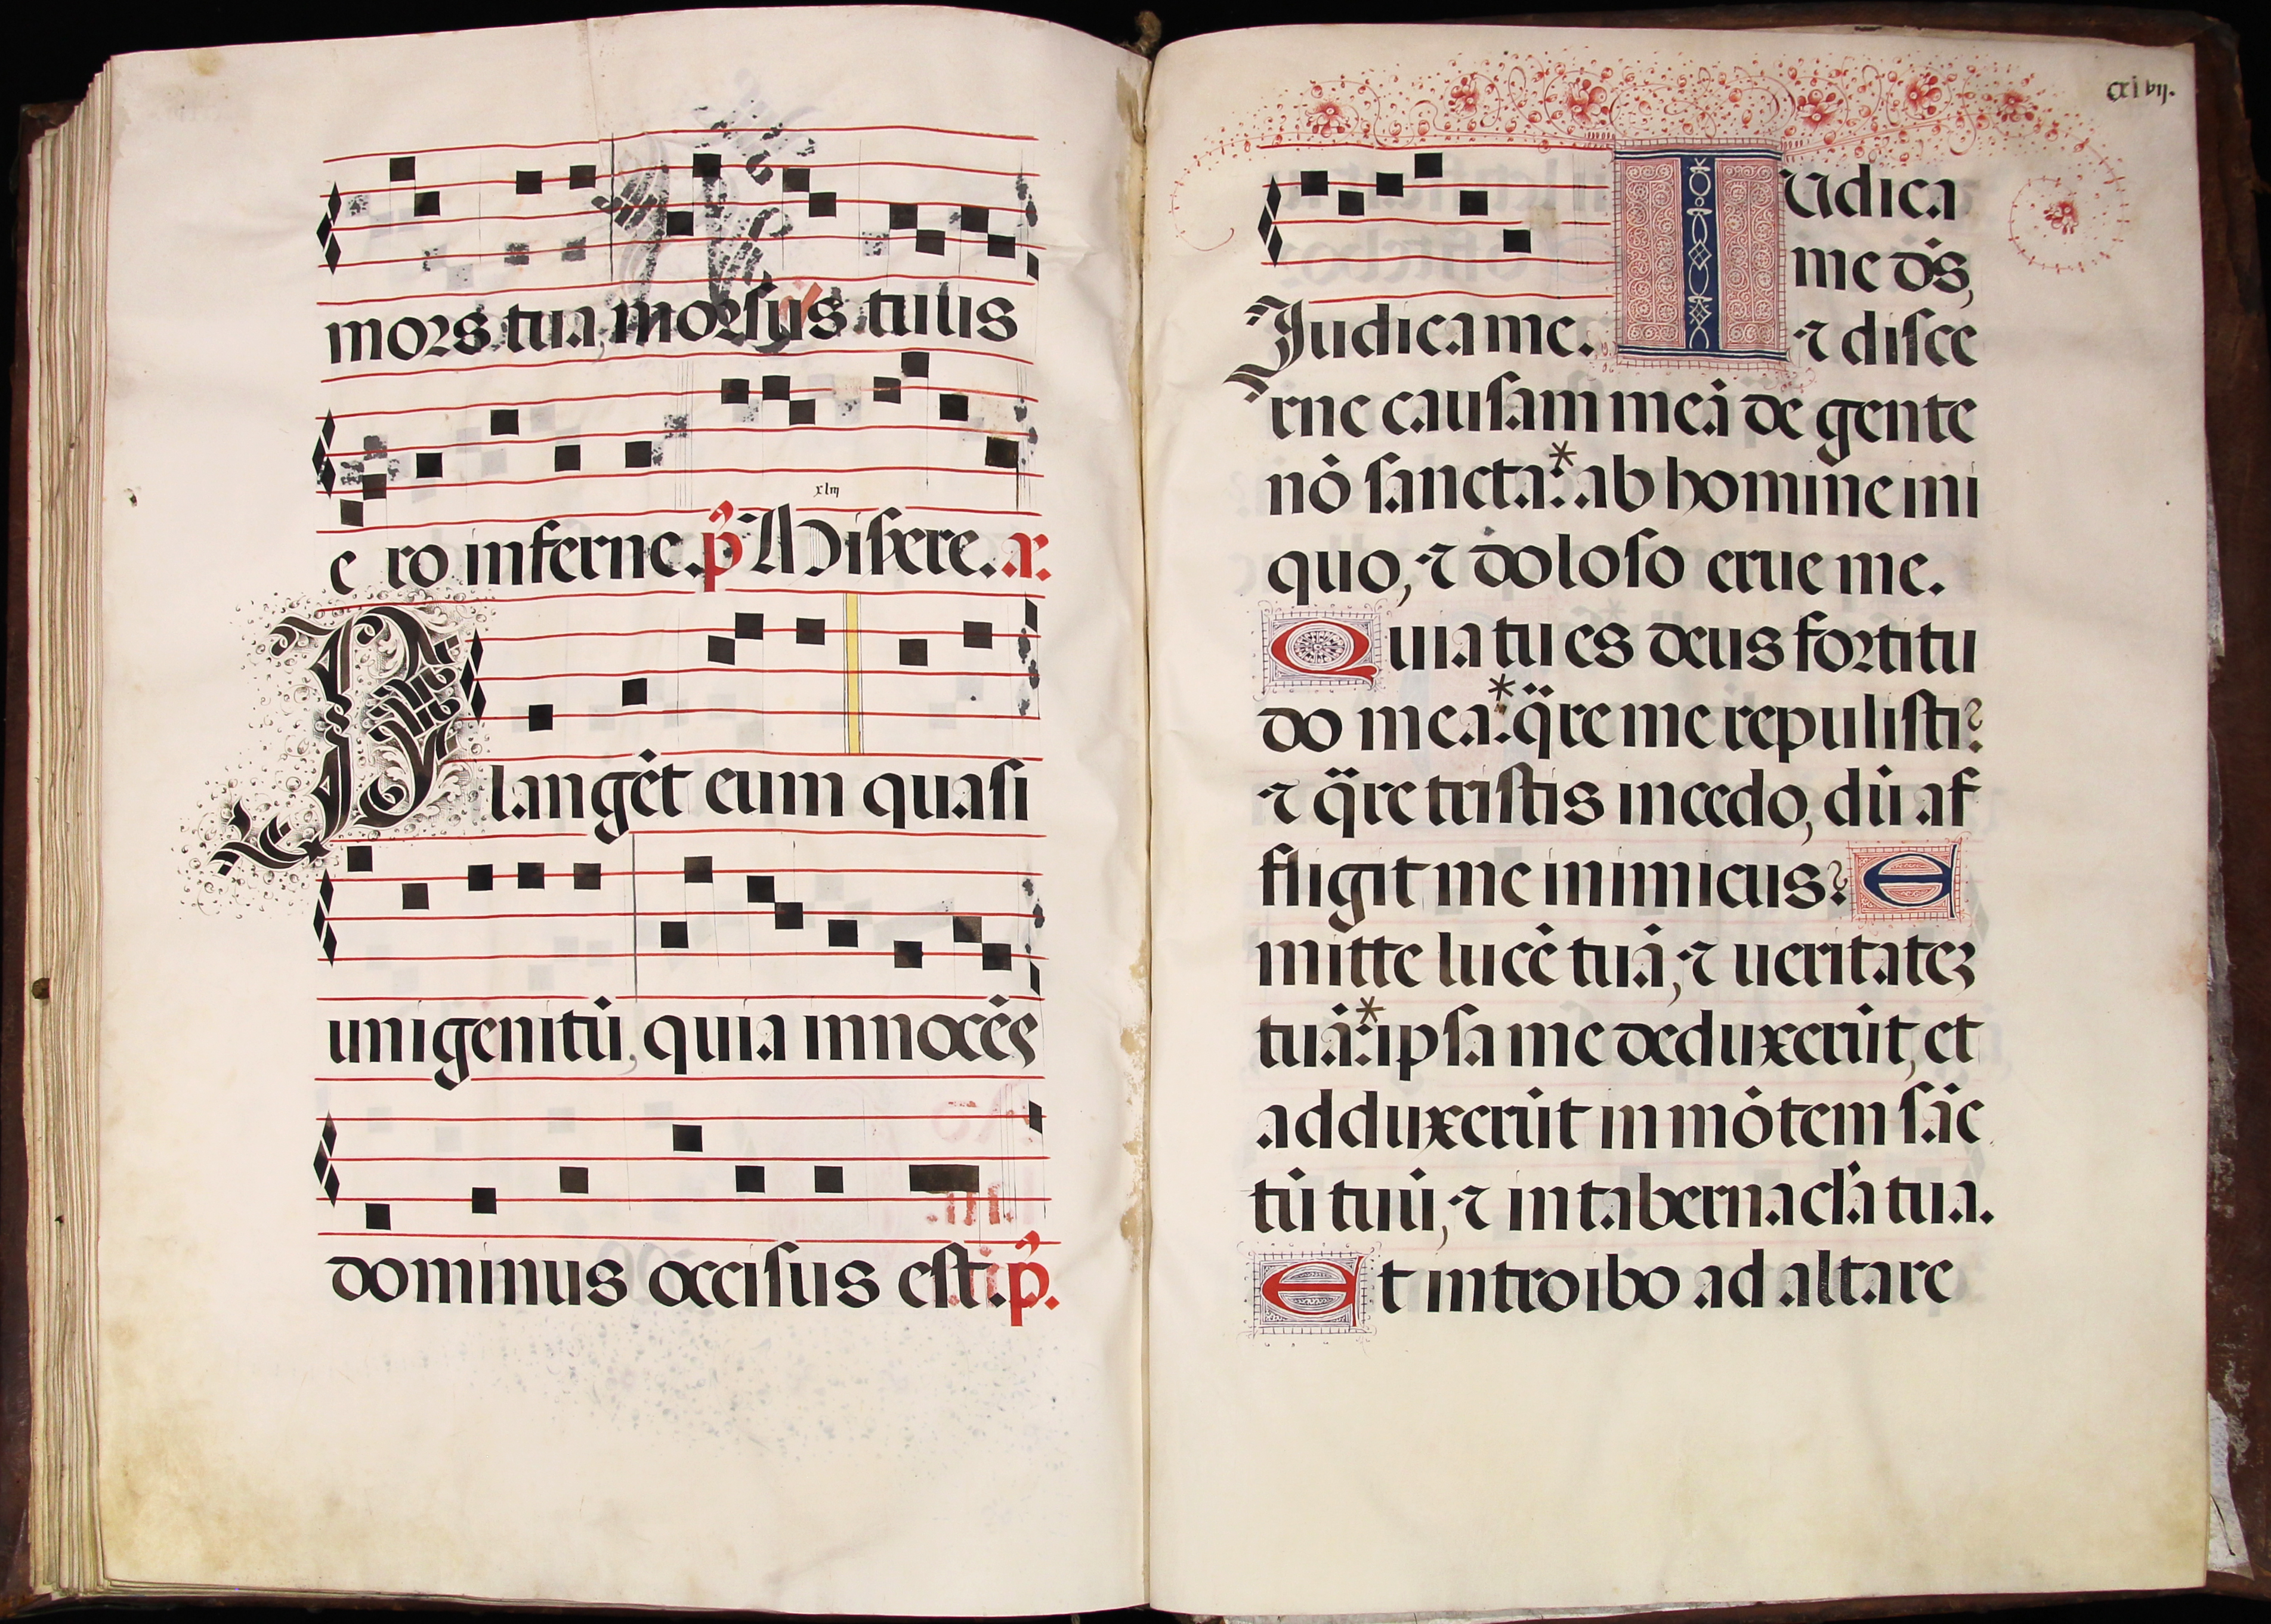 mors tua, morsus tuus
xlııȷ
e ro inferne. p̃ Misere. a.
Plangẽt eum quasi
unigenitũ, quia innocẽs
dominus occisus est. p̃.
cxlvıȷ.
Iudica
me ds̃,
Judica me. ⁊ disce
rne causam meã de gente
nõ sancta:* ab homine ini
quo, ⁊ doloso erue me.
Quia tu es deus fortitu
do mea:* q̈re me repulisti?
⁊ q̈re tristis incedo, dũ af
fligit me inimicus? E
mitte lucẽ tuã, ⁊ ueritatez
tuã:* ipsa me deduxerũt, et
adduxerũt in mõtem sãc
tũ tuũ, ⁊ in tabernacl̃a tua.
Et introibo ad altare